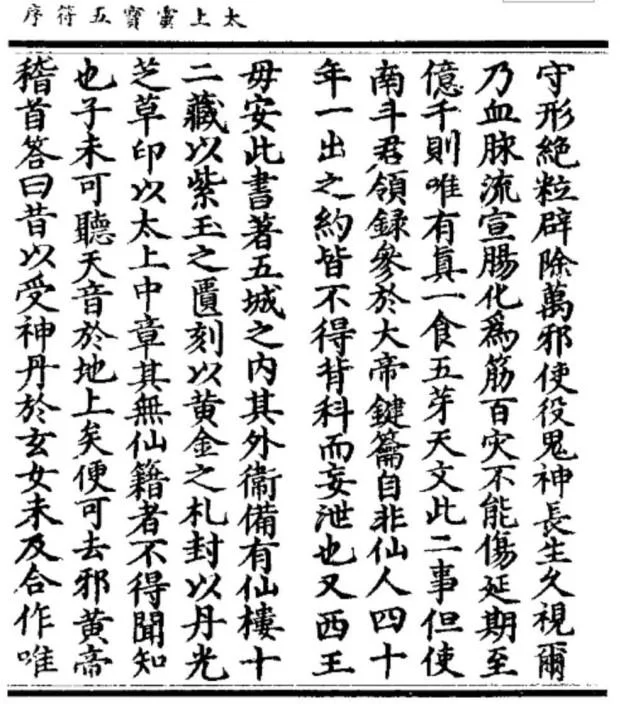 太上靈寶五符序
守形絶粒辟除萬邪使役鬼神長生久視爾
乃血脉流宣腸化爲筋百灾不能傷延期至
億千則唯有眞一食五芽天文此二事但使
南斗君領録參於大帝鍵籥自非仙人四十
年一出之約皆不得背科而妄泄也又西王
毋安此書著五城之内其外衞備有仙樓十
二藏以紫玉之匱刻以黄金之札封以丹光
芝草印以太上中章其無仙籍者不得聞知
也子未可聽天音於地上矣便可去邪黄帝
稽首答曰昔以受神丹於玄女未及合作唯